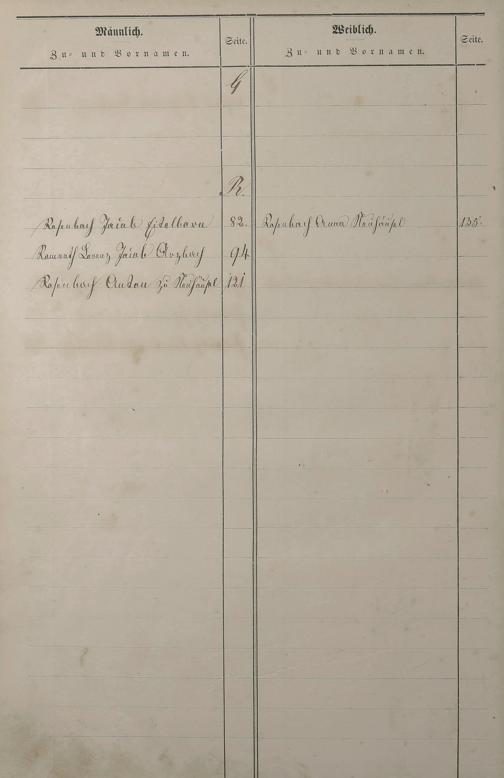 Männlich.
Zu- und Vornamen.
Seite.
Weiblich.
Zu- und Vornamen.
Seite.
R.
Rosenbach Jacob Eitelborn 82. Rosenbach Anna Neuhäusel 135.
Lorenz Jacob Arzbach 94
Rosenbach Anton zu Neuhäusel 121